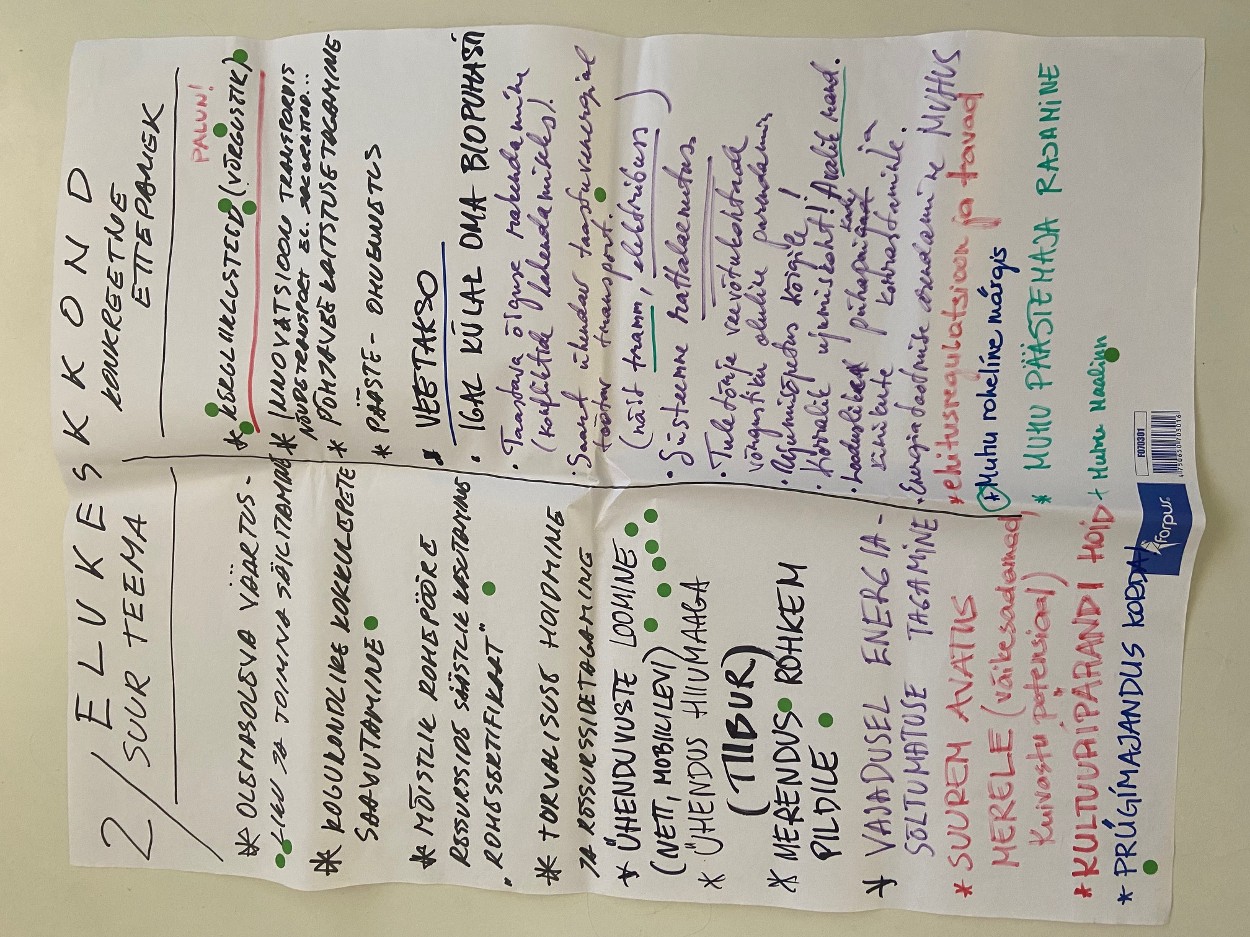 2/ ELUKESKKOND
SUUR TEEMA
* OLEMASOLEVA VÄÄRTUS-
LIKU JA TOIMIVA SÄILITAMINE
* KOGUKONDLIKE KOKKULEPETE
SAAVUTAMINE
* MÕISTLIK ROHEPÖÖRE
RESSURSSIDE SÄÄSTLIK KASUTAMINE
"ROHESERTIFIKAAT"
* TURVALISUSE HOIDMINE
JA RESSURSSIDE TAGAMINE
* ÜHENDUVUSTE LOOMINE
(NETT, MOBIILILEVI)
* ÜHENDUS HIIUMAAGA
(TIIBUR)
* MERENDUS ROHKEM
PILDILE
* VANADUSEL ENERGIA-
SÕLTUMATUSE TAGAMINE
* SUUREM AVATUS
MERELE (väikesadamad,
Kuivastu potensiaal)
* KULTUURIPÄRANDI HOID
* PRÜGIMAJANDUS KORDA!
KONKREETNE
ETTEPANEK
PALUN!
* KERGLIIKLUSTEED (VÕRGUSTIK)
* INNOVATSIOON TRANSPORDIS
NÕUDETRANSPORT EL.
* PÕHJAVEE KAITSTUSE TAGAMINE
* PÄÄSTE- OHUENNETUS
* VEETAKSO
• IGAL KÜLAL OMA BIOPUHASTI
• Taastava õiguse rakendamine
(konfliktide lahendamiseks).
• Saart ühendav taastuvenergial
töötav transport.
(näit tramm, elektribuss)
• Süsteemne rattalaenutus
• Tuletõrje veevõtukohtade
võrgustiku olukorra parandamine
• Algumisõpetus kõigile!
• Korralik ujumiskoht! Avalik rand.
• Looduslikud pühapaikade
kiviaedade korrastamine.
• Energia tootmise arendamine MUHUS
* ehitusregulatsioon ja tavad
* Muhu roheline märgis
* MUHU PÄÄSTEMAJA RAJAMINE
+ Muhu Maaliin
FO70301
Forpus